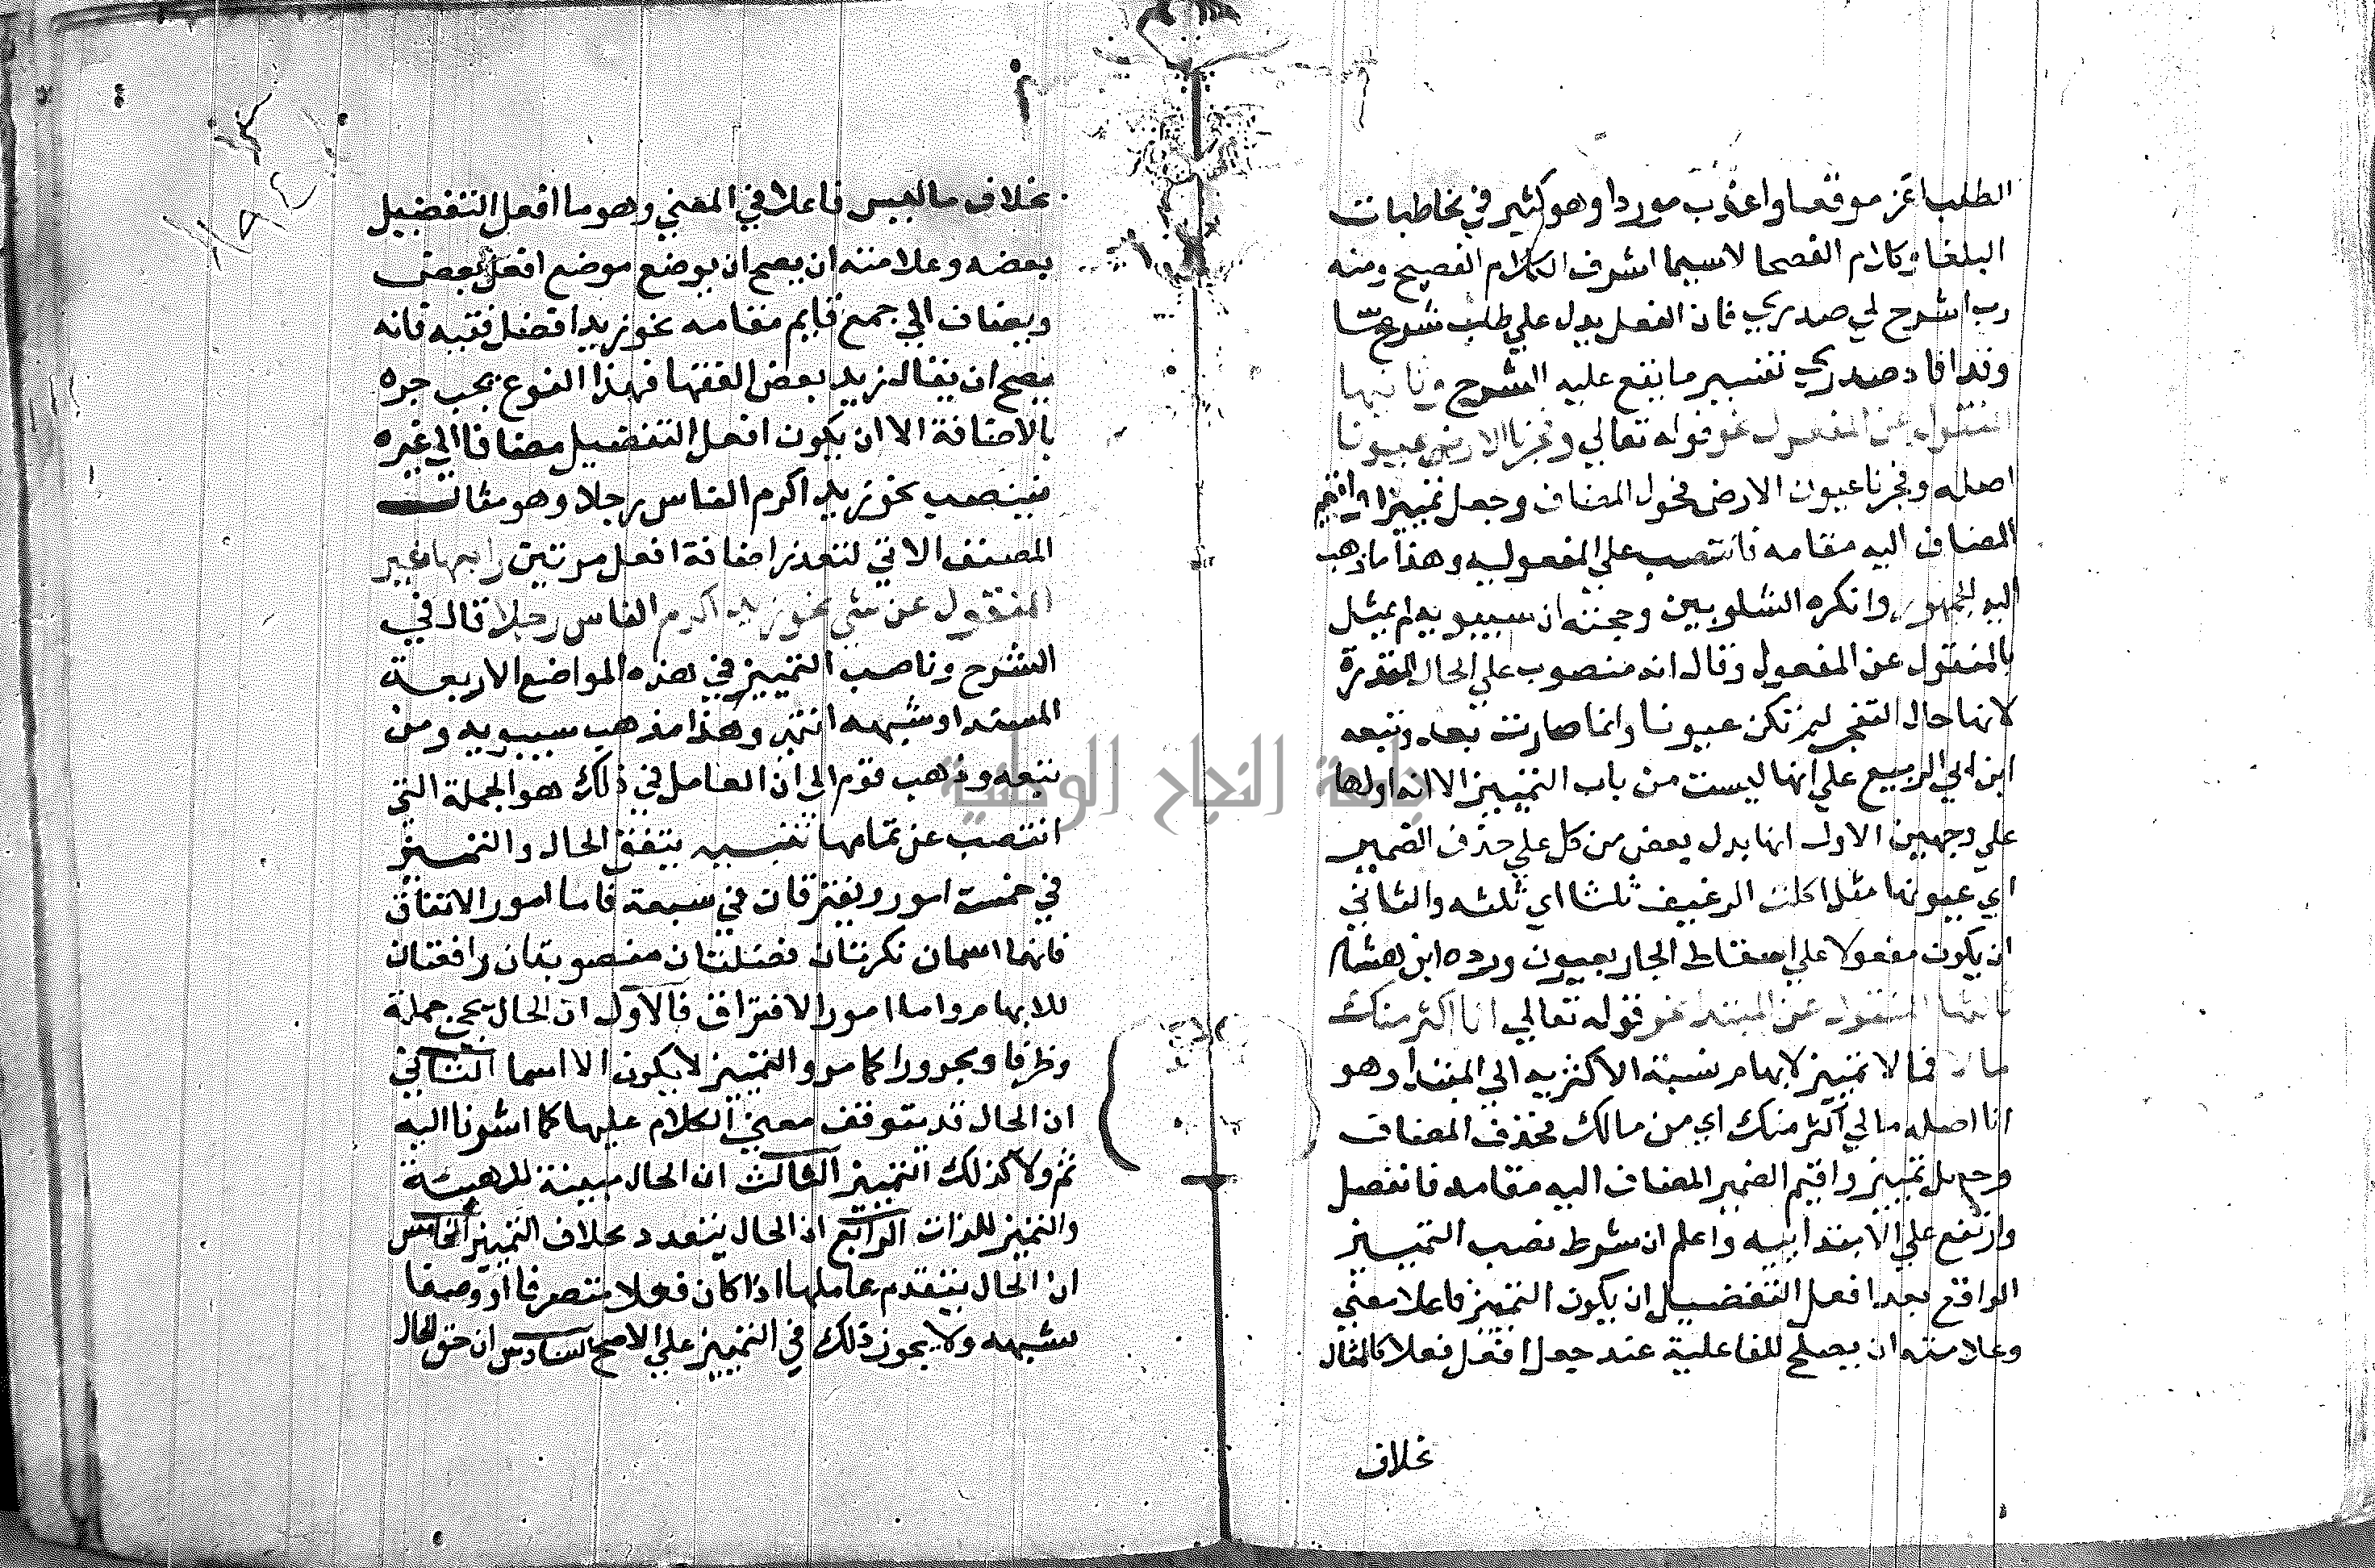 الطلب اعز موقعا واعذب موردا وهو كثير في مخاطبات
البلغا وكلام الفصحا لاسيما اشرف الكلام الفصيح ومنه
رب اشرح لي صدري فان الفعل يدل علي طلب شرح
وقد افاد صدري تفسير ما يقع عليه الشرح وثانيها
المنقول عن المفعول نحو قوله تعالي وفجرنا الارض عيونا
اصله وفجرنا عيون الارض فحول المضاف وجعل تمييزا واقيم
المضاف اليه مقامه فانتصب علي المفعوليه وهذا ما ذهب
اليه الجمهور وانكره الشلوبين وحجته ان سيبويه لم يمثل
بالمنقول عن المفعول وقال انه منصوب علي الحال المقدرة
لانها حال التفجير لم تكن عيونا وانما صارت بعد وتبعه
ابن ابي الربيع علي انها ليست من باب التمييز الا انه اولها
علي وجهين الاول انها بدل بعض من كل علي حذف الضمير
اي عيونها مثل اكلت الرغيف ثلثا اي ثلثه والثاني
ان يكون مفعولا علي اسقاط الجار بعيون ورده ابن هشام
ثالثها المنقول عن المبتدا نحو قوله تعالي انا اكثر منك
مالا فمالا تمييز لابهام نسبة الاكثريه الي المبتدا وهو
انا اصله مالي اكثر منك اي من مالك فحذف المضاف
وجعل تمييز واقيم الضمير المضاف اليه مقامه فانفصل
وارتفع علي الابتدائيه واعلم ان شرط نصب التمييز
الواقع بعد افعل التفضيل ان يكون التمييز فاعلا معني
وعلامته ان يصلح للفاعلية عند جعل افعل فعلا كالمثال
بخلاف
بخلاف ما ليس فاعلا في المعني وهو ما افعل التفضيل
بعضه وعلامته ان يصح ان يوضع موضع افعل بعض
ويضاف الي جمع قايم مقامه نحو زيد افضل فقيه فانه
يصح ان يقال زيد بعض الفقها فهذا النوع يجب جره
بالاضافة الا ان يكون افعل التفضيل مضافا الي غيره
فينصب نحو زيد اكرم الناس رجلا وهو مثال
المصنف الاتي لتعذر اضافة افعل مرتين رابعها غير
المنقول عن شي نحو زيد اكرم الناس رجلا قال في
الشرح وناصب التمييز في هذه المواضع الاربعة
المسند او شبهه انتهي وهذا مذهب سيبويه ومن
تبعه وذهب قوم الى ان العامل في ذلك هو الجملة التي
انتصب عن تمامها تنبيه يتفق الحال والتمييز
في خمسة امور ويفترقان في سبعة فاما امور الاتفاق
فانهما اسمان نكرتان فضلتان منصوبتان رافعتان
للابهام واما امور الافتراق فالاول ان الحال يجي جملة
وظرفا ومجرورا كما مر والتمييز لا يكون الا اسما الثاني
ان الحال قد يتوقف معني الكلام عليها كما اشرنا اليه
ثم ولا كذلك التمييز الثالث ان الحال مبينة للهيئة
والتمييز للذات الرابع ان الحال يتعدد بخلاف التمييز الخامس
ان الحال يتقدم عاملها اذا كان فعلا متصرفا او وصفا
يشبهه ولا يجوز ذلك في التمييز علي الاصح السادس ان حق الحال
جامعة النجاح الوطنية